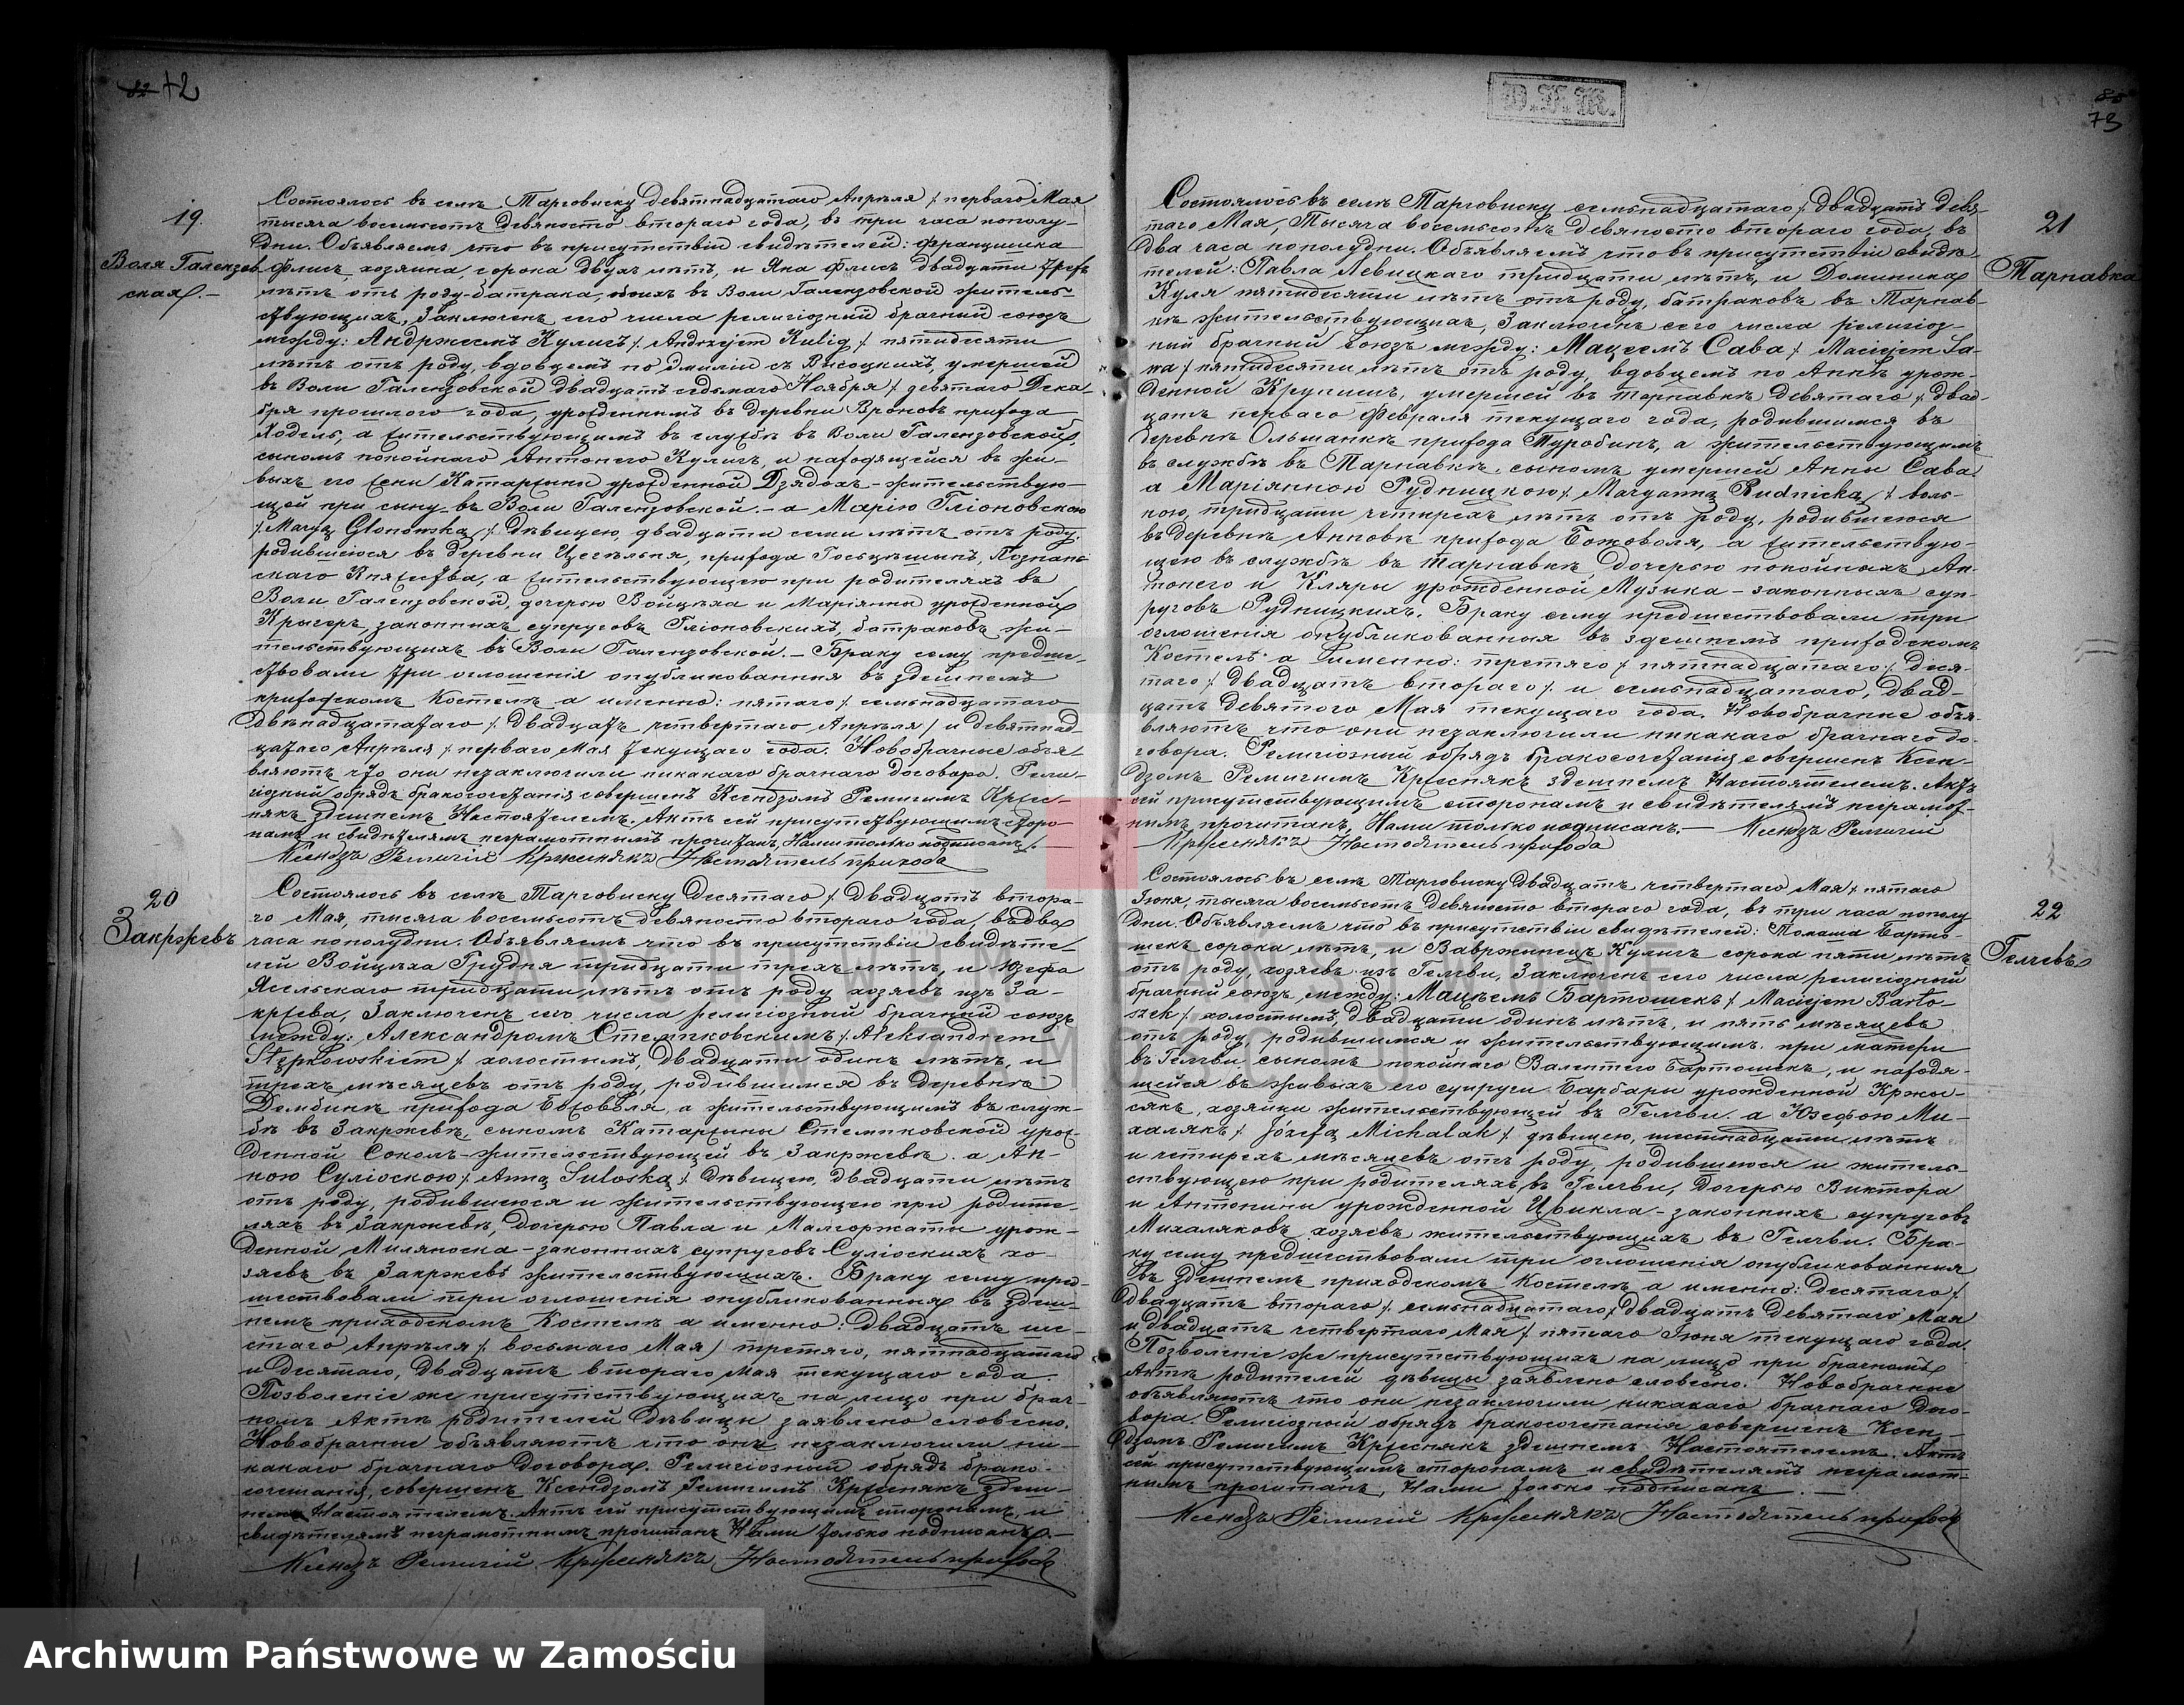 82 72
19.
Воля Галензов
ская.—
Состоялось въ селѣ Тарговиску девятнадцатаго Апрѣля / перваго Мая
тысяча восемьсотъ девяносто втораго года, въ три часа пополу-
дни. Объявляемъ что въ присутствіи свидѣтелей: Францишка
Флисъ, хозяина, сорока двухъ лѣтъ, и Яна Флисъ двадцати трехъ
лѣтъ отъ роду батрака, обоихъ въ Воли Галензовской житель-
ствующихъ, Заключенъ сего числа религіозный брачный союзъ
между: Андржеемъ Кулигъ /: Andrzejem Kulig :/ пятидесяти
лѣтъ отъ роду, вдовцемъ по Эмиліи съ Высоцкихъ, умершей
въ Воли Галензовской двадцать седьмаго Ноября / девятаго Дека-
бря прошлаго года, урожденнымъ въ деревни Вроновъ прихода
Ходель, а жительствующимъ въ службѣ въ Воли Галензовской,
сыномъ покойнаго Антонего Кулигъ, и находящейся въ жи-
выхъ его жены Катаржины урожденной Дзядохъ - жительствую-
щей при сыну въ Воли Галензовской. - а Марію Гліоновскою
/: Maryą Glonowską :/ дѣвицею, двадцати семи лѣтъ отъ роду,
родившеюся въ деревни Цегельня, прихода Госьцѣшынъ, Познань-
скаго Княжества, а жительствующею при родителяхъ въ
Воли Галензовской, дочерью Войцѣха и Маріянны урожденной
Крыгеръ, законныхъ супруговъ Гліоновскихъ, батраковъ жи-
тельствующихъ въ Воли Галензовской. — Браку сему предше-
ствовали три оглошенія опубликованныя въ здешнемъ
приходскомъ Костелѣ а именно: пятаго / семьнадцатаго
двѣнадцататаго / двадцать четвертаго Апрѣля / и девятнад-
цатаго Апрѣля / перваго Мая текущаго года. Новобрачные объя-
вляютъ что они незаключили никакаго брачнаго договора. Рели-
гіозный обрядъ бракосочетанія совершенъ Ксендзомъ Ремигимъ Кржес-
някъ здешнемъ Настоятелемъ. Актъ сей присутствующимъ сторо-
намъ и свидѣтелямъ неграмотнымъ прочитанъ, Нами только подписанъ. —
Ксендзъ Ремигій Кржеснякъ Настоятель прихода
20
Закржевъ
Состоялось въ селѣ Тарговиску десятаго / двадцать втора-
го Мая, тысяча восемьсотъ девяносто втораго года, въ два
часа пополудни. Объявляемъ что въ присутствіи свидѣте-
лей Войцѣха Грудня тридцати трехъ лѣтъ, и Юзефа
Ясельскаго тридцати лѣтъ отъ роду хозяевъ изъ За-
кржева, Заключенъ сего числа религіозный брачной союзъ
между: Александромъ Стемпковскимъ /: Aleksandrem
Stępkowskiem :/ холостымъ, двадцати одинъ лѣтъ, и
трехъ мѣсяцевъ отъ роду, родившимся въ деревнѣ
Дембинѣ прихода Божоволя, а жительствующимъ въ служ-
бѣ въ Закржевѣ, сыномъ Катаржины Стемпковской урож-
денной Соколъ - жительствующей въ Закржевѣ. а Ан-
ною Суліоскою /: Anną Suloską :/ дѣвицею, двадцати лѣтъ
отъ роду, родившеюся и жительствующею при родите-
ляхъ въ Закржевѣ, дочерью Павла и Малгоржаты урож-
денной Миляноска - законныхъ супруговъ Суліоскихъ хо-
зяевъ въ Закржевѣ жительствующихъ. Браку сему пред-
шествовали три оглошенія опубликованныя въ здеш-
немъ приходскомъ Костелѣ а именно: двадцать ше-
стаго Апрѣля / восьмаго Мая / третяго, пятнадцатаго
и десятаго, двадцать втораго Мая текущаго года.
Позволеніе же присутствующихъ на лицо при брач-
номъ Актѣ родителей дѣвицы заявлено словесно.
Новобрачные объявляютъ что они незаключили ни-
какаго брачнаго договора. Религіозный обрядъ брако-
сочетанія совершенъ Ксендзомъ Ремигимъ Кржеснякъ здеш-
немъ Настоятелемъ. Актъ сей присутствующимъ сторонамъ, и
свидѣтелямъ неграмотнымъ прочитанъ Нами только подписанъ. —
Ксендзъ Ремигій Кржеснякъ Настоятель прихода
D.F.R.
73
21
Тарнавка
Состоялось въ селѣ Тарговиску семьнадцатаго / двадцать девя-
таго Мая, Тысяча восемьсотъ девяносто втораго года, въ
два часа пополудни. Объявляемъ что въ присутствіи свидѣ-
телей: Павла Левицкаго тридцати лѣтъ, и Доминика
Куля пятидесяти лѣтъ отъ роду, батраковъ въ Тарнав-
кѣ жительствующихъ, Заключенъ сего числа религіоз-
ный брачный союзъ между: Мацеемъ Сава /: Maciejem Sa-
wa :/ пятидесяти лѣтъ отъ роду, вдовцемъ по Аннѣ урож-
денной Крупишъ, умершей въ Тарнавкѣ девятаго / двад-
цать перваго Февраля текущаго года, родившимся въ
деревнѣ Ольшанкѣ прихода Туробинъ, а жительствующимъ
въ службѣ въ Тарнавкѣ, сыномъ умершей Анны Сава
а Маріянною Рудницкою /: Maryanną Rudnicką :/ воль-
ною, тридцати четырехъ лѣтъ отъ роду, родившеюся
въ деревнѣ Анновкѣ прихода Божоволя, а жительствую-
щею въ службѣ въ Тарнавкѣ дочерью покойныхъ Ан-
тонего и Кляры урожденной Музыка - законныхъ суп-
руговъ Рудницкихъ. Браку сему предшествовали три
оглошенія опубликованныя въ здешнемъ приходскомъ
Костелѣ а именно: третяго / пятнадцатаго /: деся-
таго / двадцать втораго / и семьнадцатаго, двад-
цать девятаго Мая текущаго года. Новобрачные объя-
вляютъ что они незаключили никакаго брачнаго до-
говора. Религіозный обрядъ бракосочетанія совершенъ Ксен-
дзомъ Ремигимъ Кржеснякъ здешнемъ Настоятелемъ. Актъ
сей присутствующимъ сторонамъ и свидѣтелямъ неграмот-
нымъ прочитанъ, Нами только подписанъ. — Ксендзъ Ремигій
Кржеснякъ Настоятель прихода
22
Гелчевъ
Состоялось въ селѣ Тарговиску двадцать четвертаго Мая / пятаго
Іюня, тысяча восемьсотъ девяносто втораго года, въ три часа пополу-
дни. Объявляемъ что въ присутствіи свидѣтелей: Томаша Барто-
шекъ сорока лѣтъ, и Вавржинецъ Кулигъ сорока пяти лѣтъ
отъ роду, хозяевъ изъ Гелчви, Заключенъ сего числа религіозный
брачный союзъ, между: Мацѣемъ Бартошекъ /: Maciejem Barto-
szek :/ холостымъ, двадцати одинъ лѣтъ, и пять мѣсяцевъ
отъ роду, родившимся и жительствующимъ при матери
въ Гелчви, сыномъ покойнаго Валентего Бартошекъ, и находя-
щейся въ живыхъ его супруги Барбары урожденной Кржы-
сякъ, хозяйки жительствующей въ Гелчви. а Юзефою Ми-
халякъ /: Józefą Michalak :/ дѣвицею, шестнадцати лѣтъ
и четырехъ мѣсяцевъ отъ роду, родившеюся и житель-
ствующею при родителяхъ въ Гелчви, дочерью Виктора
и Антонины урожденной Цвикла - законныхъ супруговъ
Михаляковъ хозяевъ жительствующихъ въ Гелчви. Бра-
ку сему предшествовали три оглошенія опубликованныя
въ здешнемъ приходскомъ Костелѣ а именно: десятаго /
двадцать втораго /: семьнадцатаго / двадцать девятаго Мая
и двадцать четвертаго Мая / пятаго Іюня текущаго года.
Позволеніе же присутствующихъ на лицо при брачномъ
Актѣ родителей дѣвицы заявлено словесно. Новобрачные
объявляютъ что они незаключили никакаго брачнаго дого-
вора. Религіозный обрядъ бракосочетанія совершенъ Ксен-
дзомъ Ремигимъ Кржеснякъ здешнемъ Настоятелемъ. Актъ
сей присутствующимъ сторонамъ и свидѣтелямъ неграмот-
нымъ прочитанъ, Нами только подписанъ. —
Ксендзъ Ремигій Кржеснякъ Настоятель прихода
Archiwum Państwowe w Zamościu